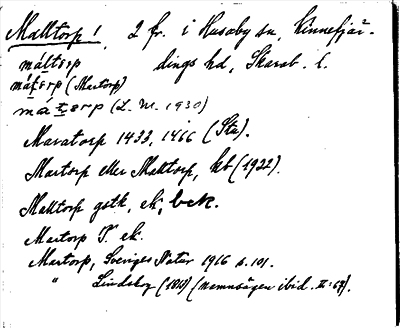 Malltorp! 2 fr. i Husaby sn, Kinnefjär-
máltorp dings hd, Skarab. l.
mát̠orp (Martorp)
mát̠orp (L. M. 1930)
Maratorp 1433, 1466 (Sta).
Martorp eller Malltorp, kb (1922).
Malltorp gstk, ek, bek.
Martorp T. ek.
Martorp, Sveriges Natur 1916 s. 101.
" Lindskog (1812) (namnsägen ibid. II: 67).